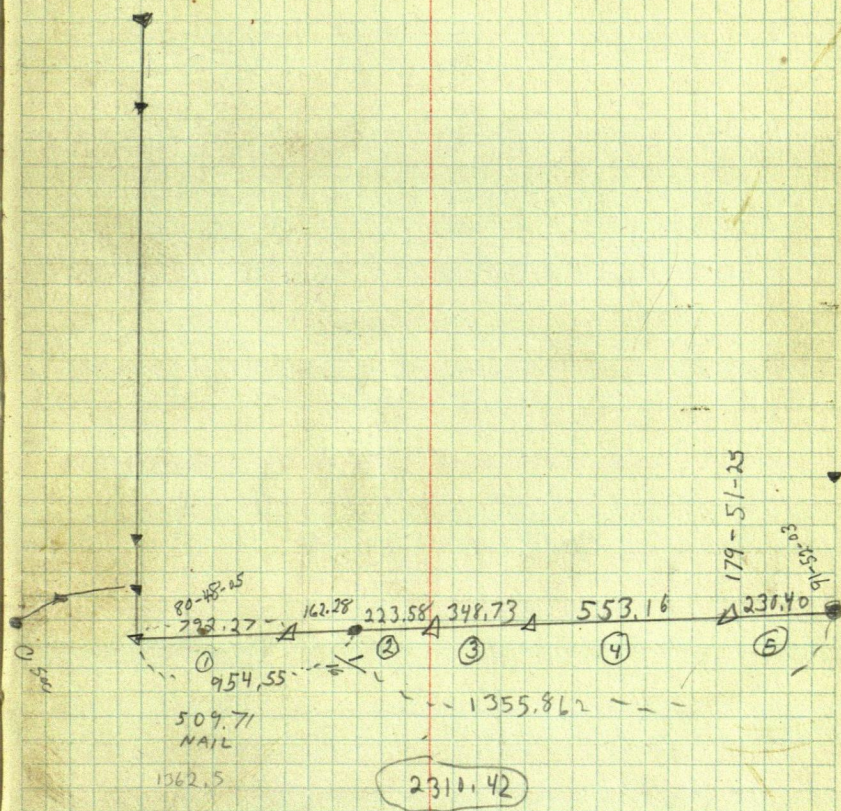 179-51-25
91-52-03
80-48-05
792.27 162.28 223.58 348.73 553.16 230.40
① ② ③ ④ ⑤
954,55
1355.862
509.71
NAIL
1362.5
2310.42